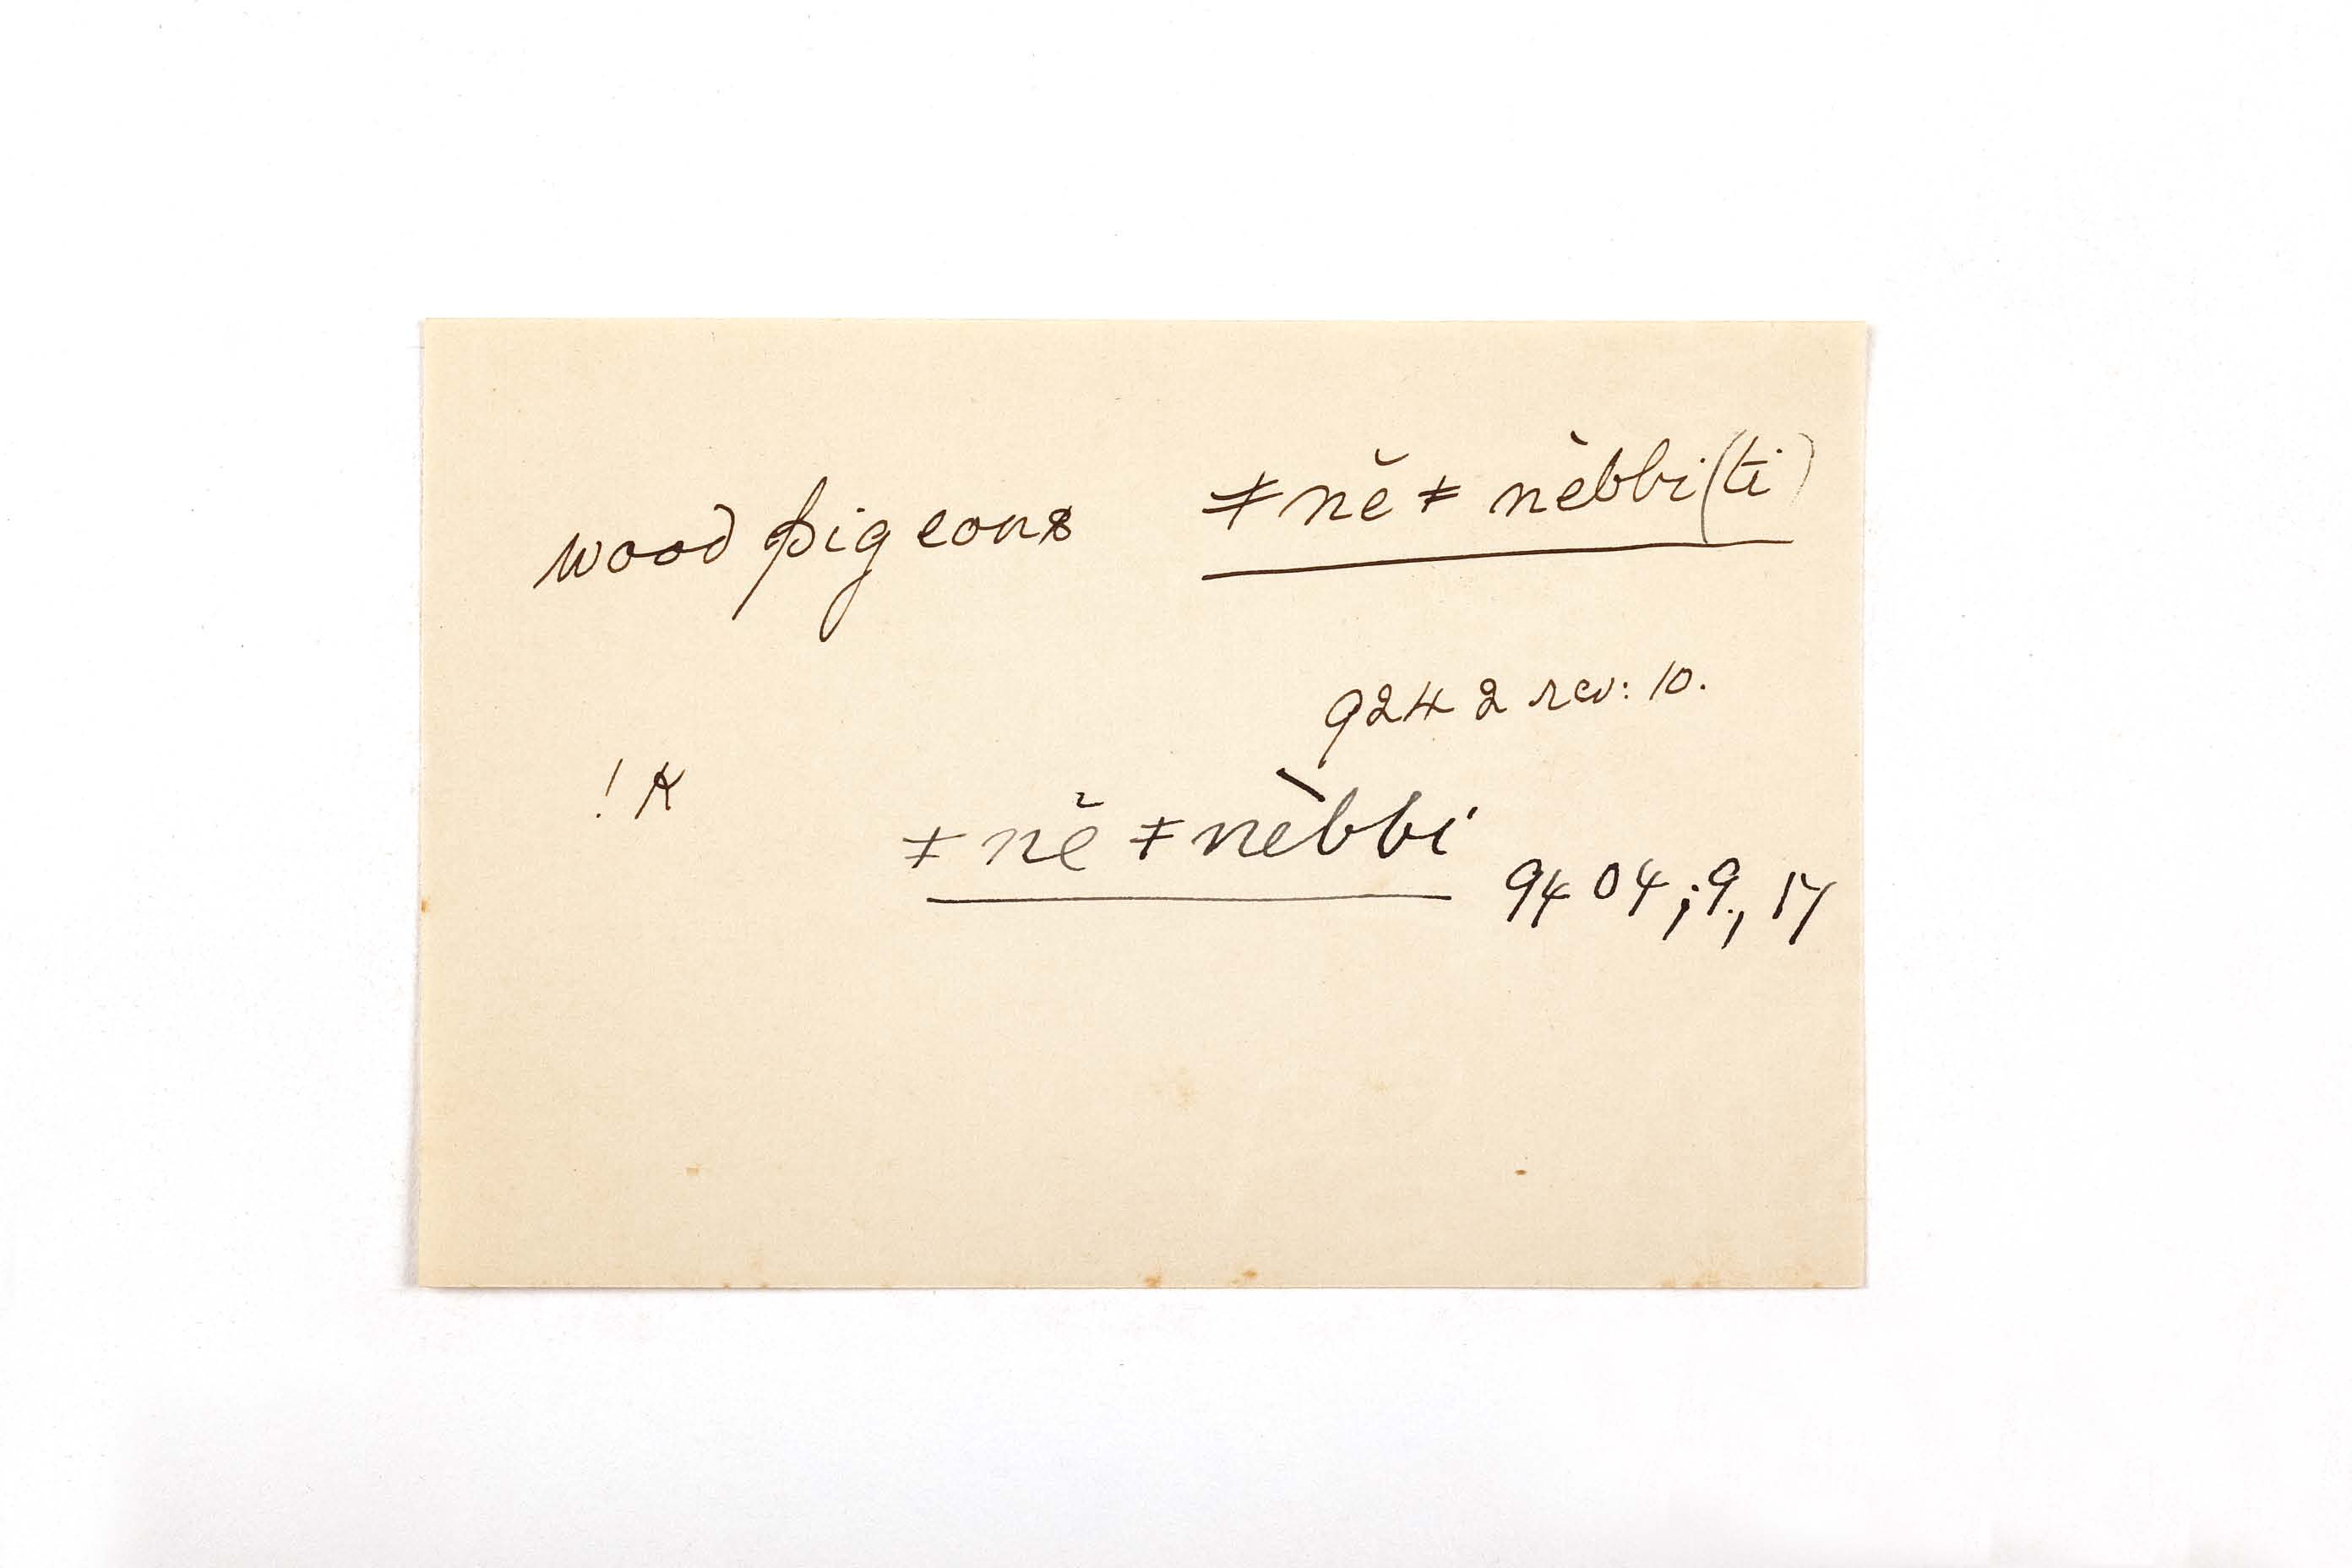 wood pigeons ǂnĕ ǂ nèbbi(ti)
9242 rev: 10.
! K
ǂ nĕ ǂ nèbbi 9404; 9., 17